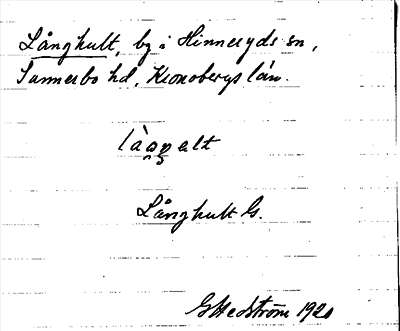 Långhult, by i Hinneryds sn,
Sunnerbo hd, Kronobergs län.
Långhult G.
G Hedström 1920